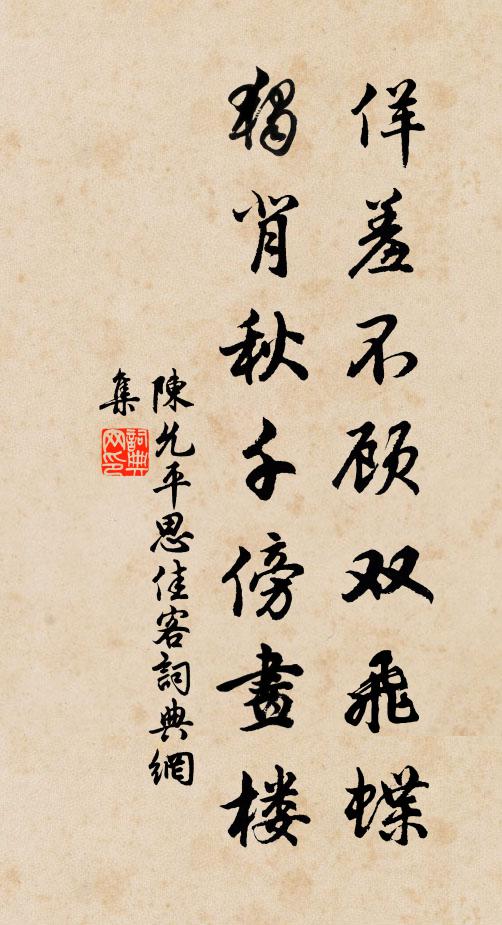 佯羞不顾双飞蝶
獨背秋千傍畫楼
陳允平思佳客詞典網
集
詞典网印